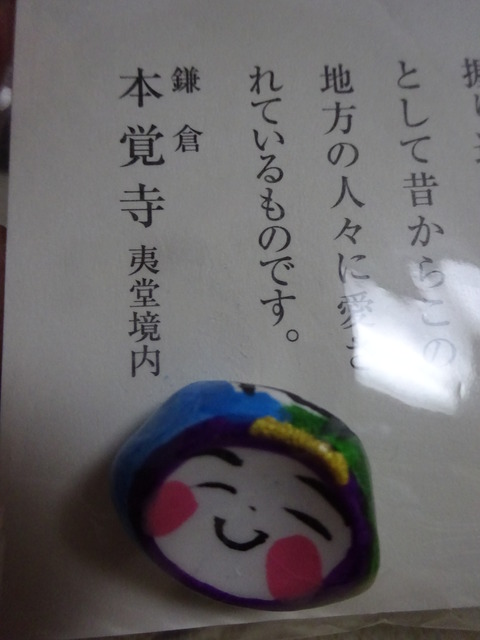 として昔からこの
地方の人々に愛さ
れているものです。
鎌倉
本覚寺 夷堂境内